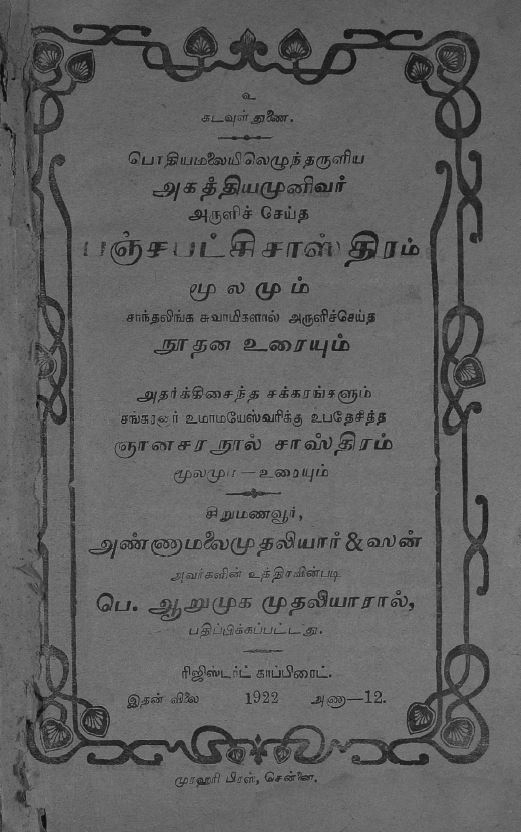 உ
கடவுள் துணை.
பொதியமலையிலெழுந்தருளிய
அகத்தியமுனிவர்
அருளிச் செய்த
பஞ்சபட்சிசாஸ்திரம்
மூலமும்
சாந்தலிங்க சுவாமிகளால் அருளிச்செய்த
நூதன உரையும்
அதற்க்கிசைந்த சக்கரங்களும்
சங்கரனார் உமாமயேஸ்வரிக்கு உபதேசித்த
ஞானசர நூல் சாஸ்திரம்
மூலமும் — உரையும்
சிறுமணவூர்,
அண்ணாமலைமுதலியார் & ஸன்
அவர்களின் உத்திரவின்படி
பெ. ஆறுமுக முதலியாரால்,
பதிப்பிக்கப்பட்டது.
ரிஜிஸ்டர்ட் காப்பிரைட்.
இதன் விலை 1922 அணா—12.
முரஹரி பிரஸ், சென்னை.